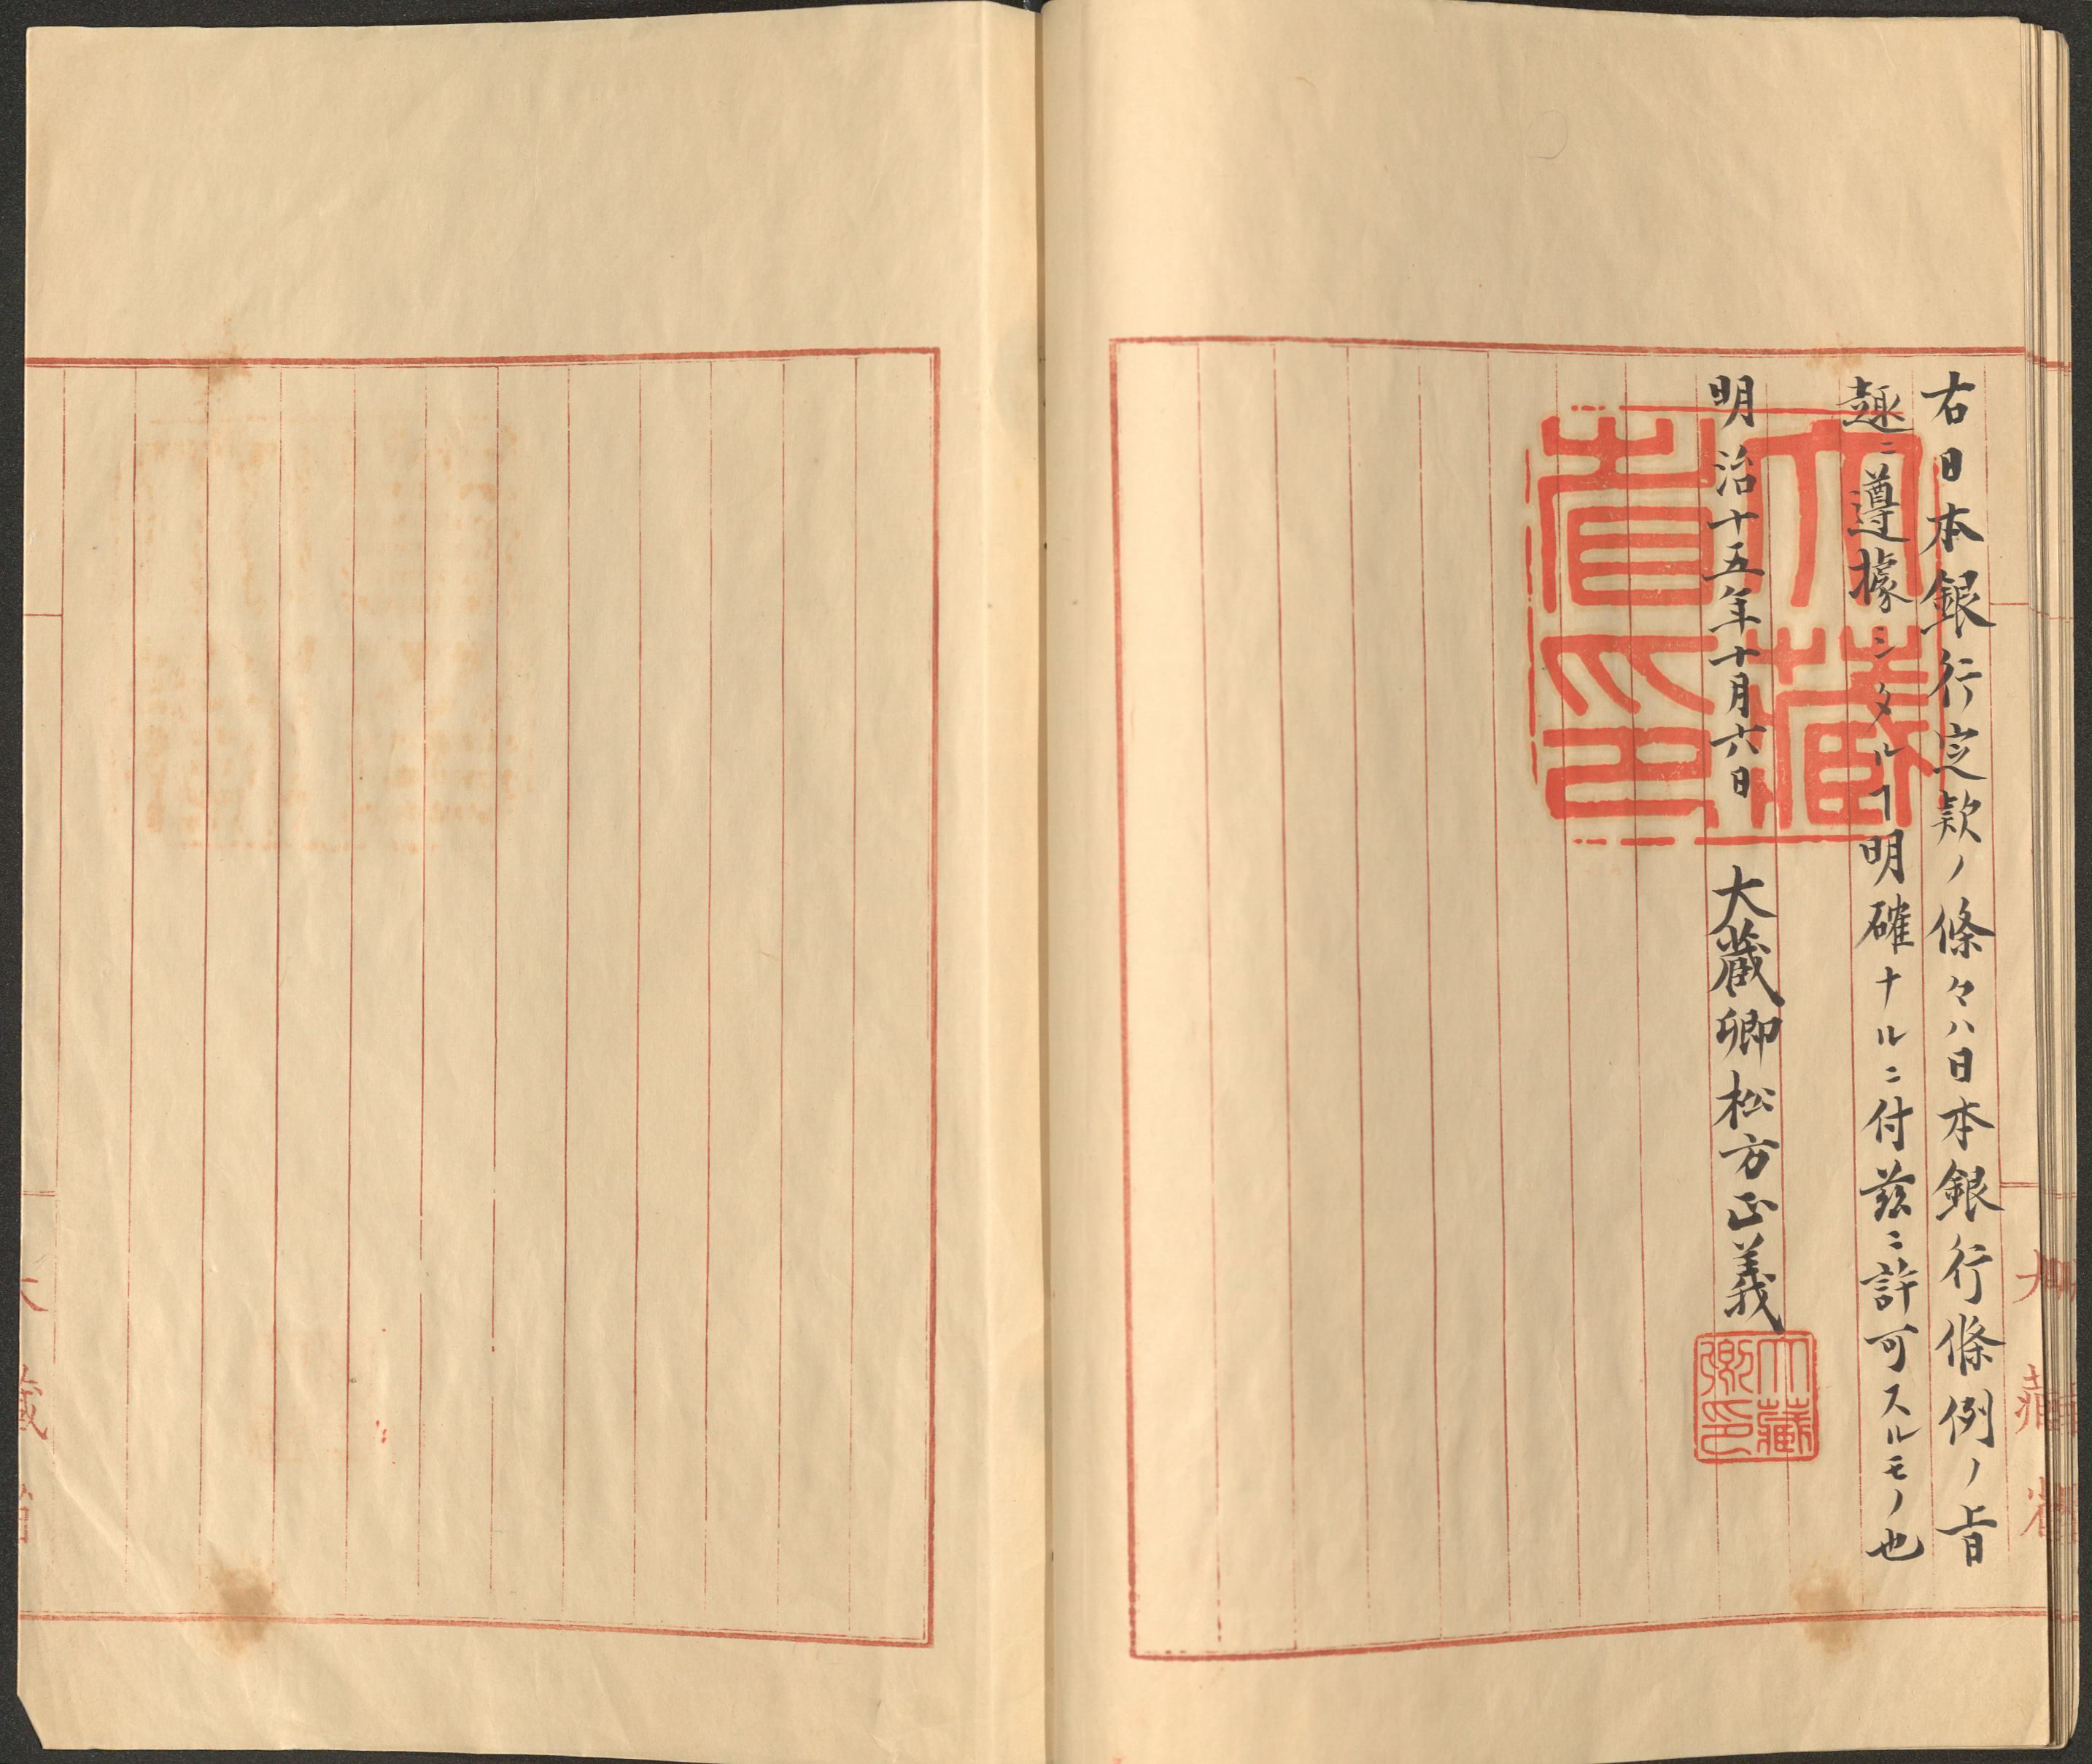 右日本銀行定款ノ條々ハ日本銀行條例ノ旨
趣ニ遵據シタルヿ明確ナルニ付茲ニ許可スルモノ也
明治十五年十月六日　大藏卿松方正義
大藏省印
大藏卿印
大藏省
大藏省